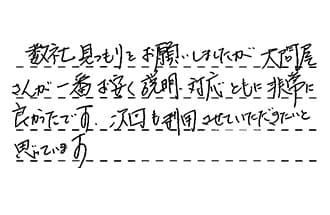 数社見つもりをお願いしましたが大問屋
さんが一番お安く説明・対応ともに非常に
良かったです。次回も利用させていただきたいと
思っています